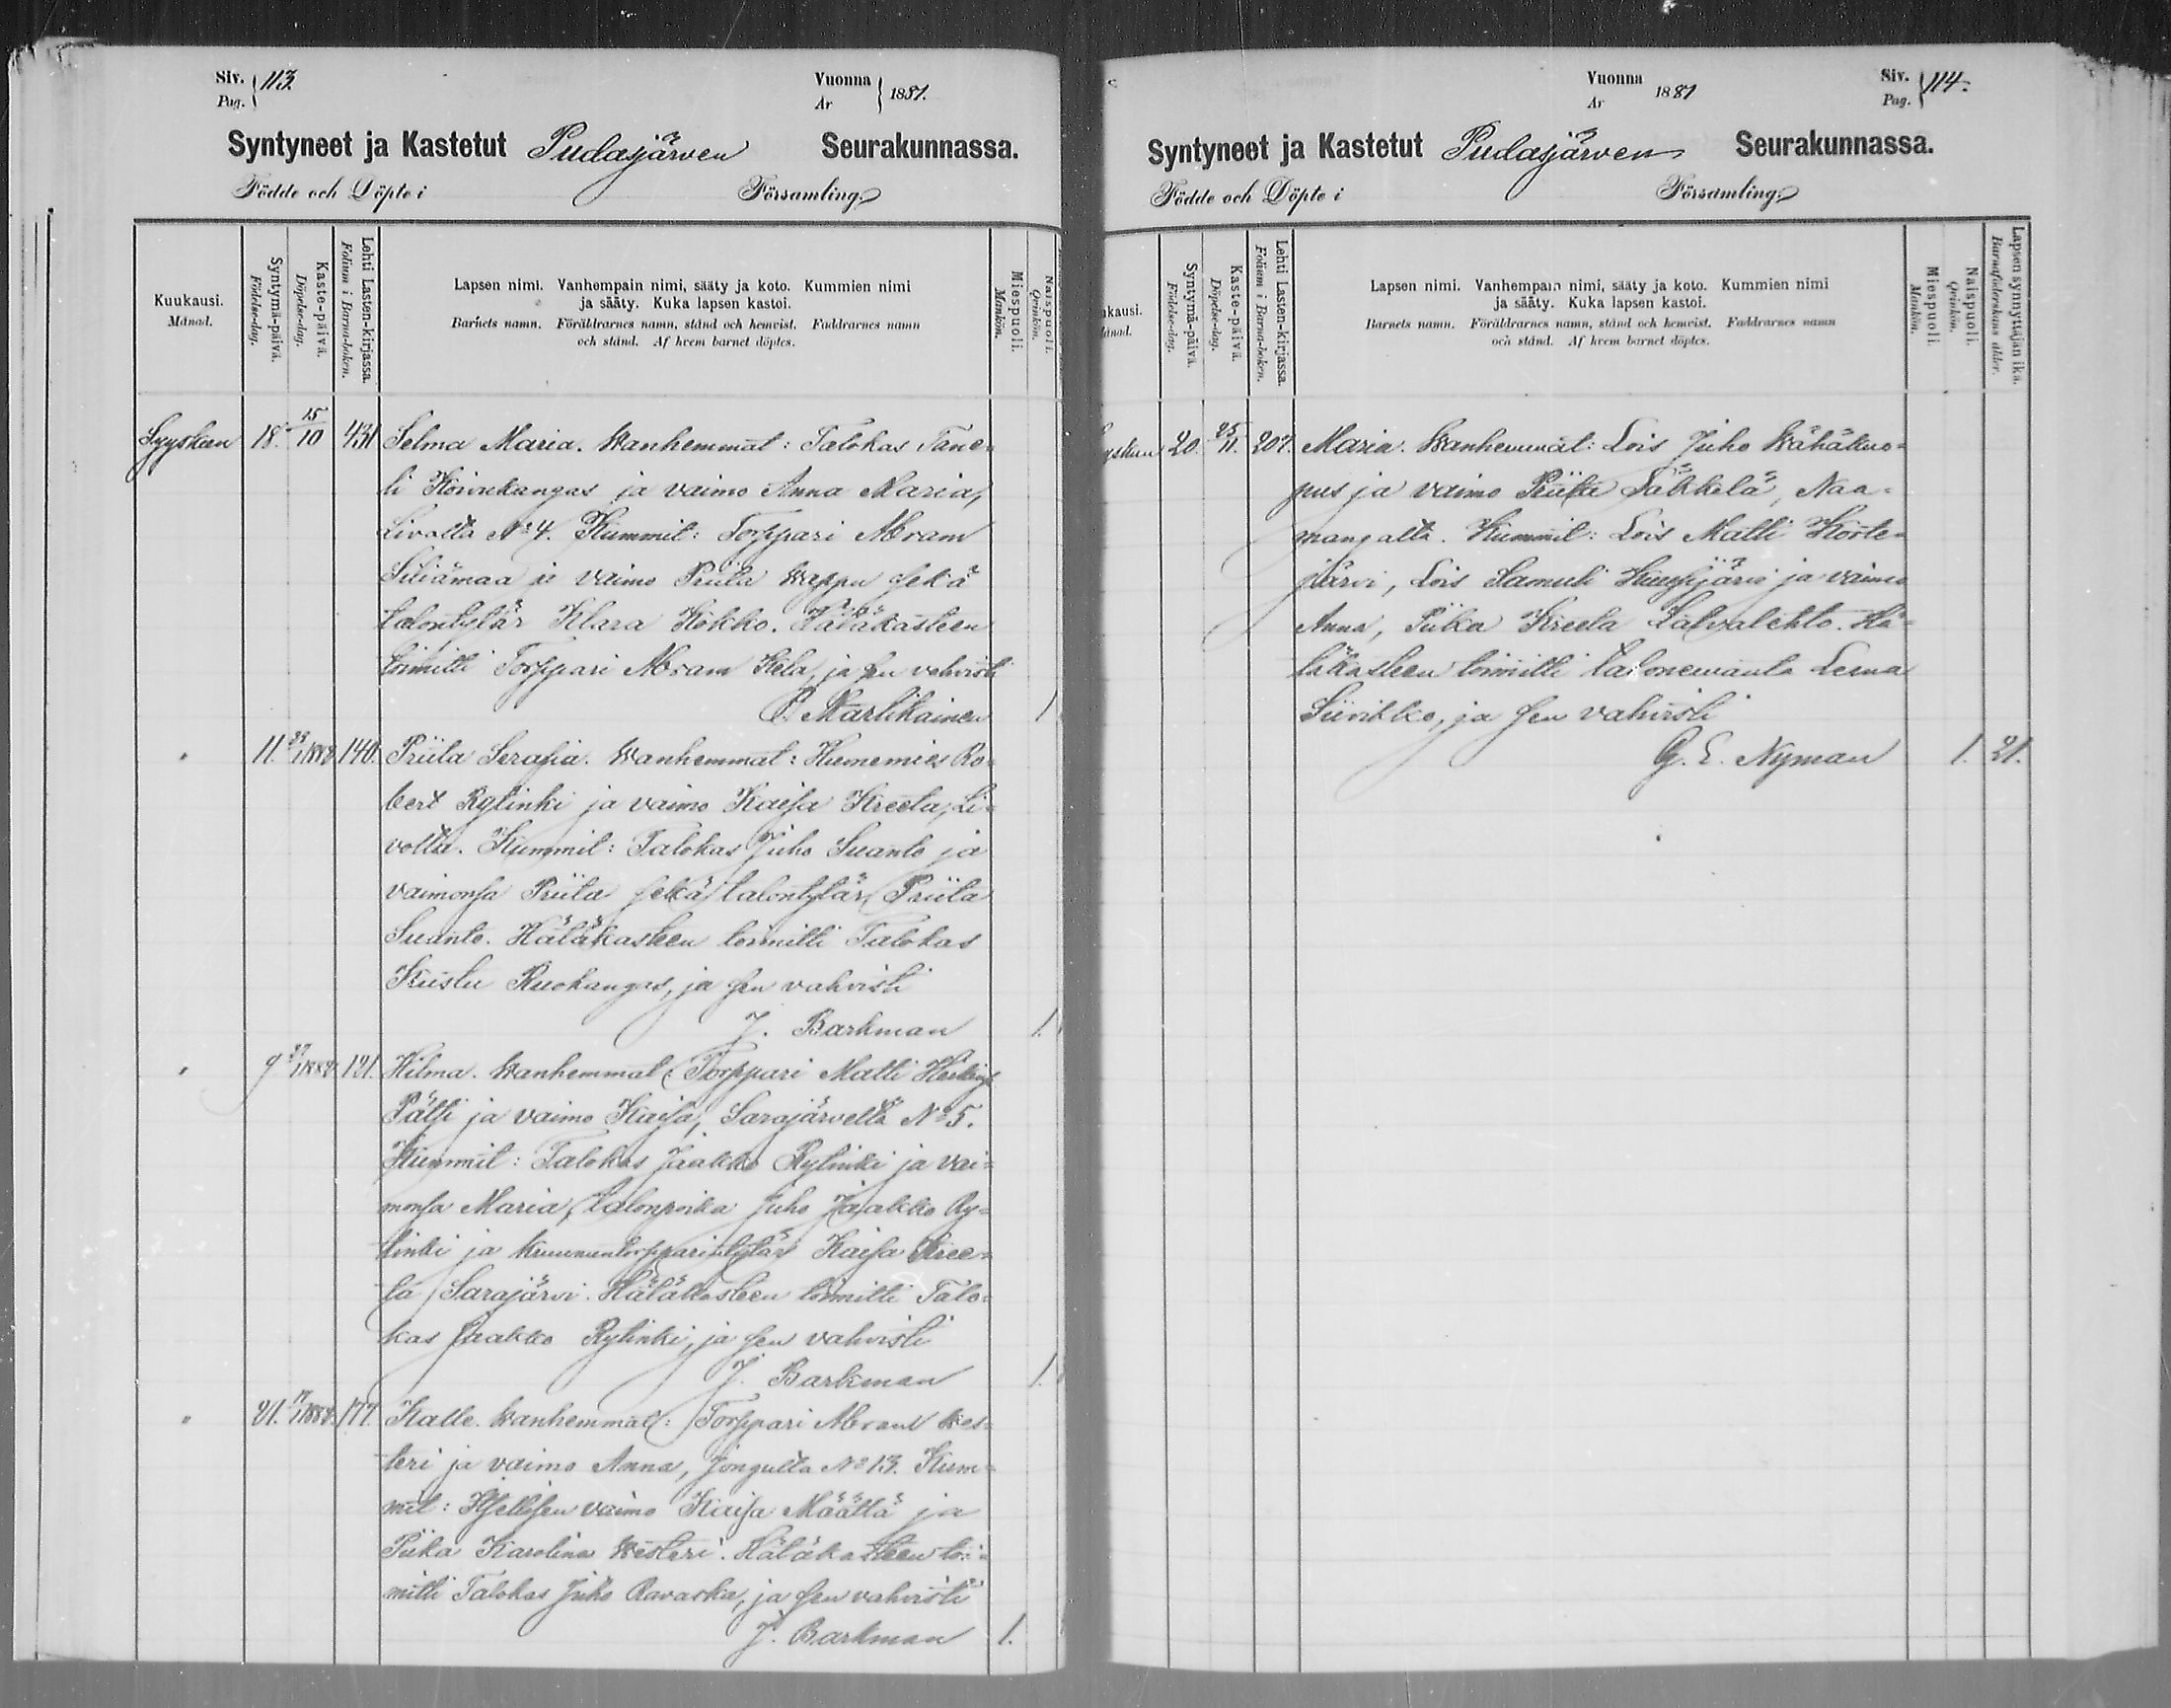 Siv. 113.
Pag.
Vuonna 1881.
År
Syntyneet ja Kastetut Pudasjärven Seurakunnassa.
Födde och Döpte i Församling.
Kuukausi.
Månad.
Syntymä-päivä.
Födelse-dag.
Kaste-päivä.
Döpelse-dag.
Lehti Lasten-kirjassa.
Folium i Barna-boken.
Lapsen nimi. Vanhempain nimi, sääty ja koto. Kummien nimi
ja sääty. Kuka lapsen kastoi.
Barnets namn. Föräldrarnes namn, stånd och hemvist. Faddrarnes namn
och stånd. Af hvem barnet döptes.
Miespuoli.
Mankön.
Naispuoli.
Qvinkön.
Syyskuu 18. 15/10 431 Selma Maria. Wanhemmat: Talokas Tane-
li Koivukangas ja vaimo Anna Maria,
Livolta No 4. Kummit: Torppari Abram
Siliämaa ja vaimo Priita Wappu sekä
talontytär Klara Kokko. Hätäkasteen
toimitti Torppari Abram Kela, ja sen vahvisti
P. Martikainen 1
" 11. 1/1882 140. Priita Serafia. Wanhemmat: Huonemies Ro-
bert Rytinki ja vaimo Kaisa Kreeta, Li-
volta. Kummit: Talokas Juho Suanto ja
vaimonsa Priita sekä talontytär Priita
Suanto. Hätäkasteen toimitti Talokas
Kustu Ruokangas, ja sen vahvisti
J. Barkman 1.
" 9 27/1 1882 121. Hilma. Wanhemmat: Torppari Matti
Pätsi ja vaimo Kaisa, Sarajärveltä No 5.
Kummit: Talokas Jaakko Rytinki ja vai-
monsa Maria, talonpoika Juho Jaakko Ry-
tinki ja kruununtorpparintytär Kaisa Kree-
ta Sarajärvi. Hätäkasteen toimitti Talo-
kas Jaakko Rytinki, ja sen vahvisti
J. Barkman 1.
" 21. 17/1 1882. 177. Kalle. Wanhemmat: Torppari Abram Wes-
teri ja vaimo Anna, Jongulta No 13. Kum-
mit: Itsellisen vaimo Kaisa Määttä ja
Piika Karolina Westeri. Hätäkasteen toi-
mitti Talokas Juho Ravaska, ja sen vahvisti
J. Barkman 1.
Vuonna 1881
År
Siv. 114.
Pag.
Syntyneet ja Kastetut Pudasjärven Seurakunnassa.
Födde och Döpte i Församling.
kausi.
Månad.
Syntymä-päivä.
Födelse-dag.
Kaste-päivä.
Döpelse-dag.
Lehti Lasten-kirjassa.
Folium i Barna-boken.
Lapsen nimi. Vanhempain nimi, sääty ja koto. Kummien nimi
ja sääty. Kuka lapsen kastoi.
Barnets namn. Föräldrarnes namn, stånd och hemvist. Faddrarnes namn
och stånd. Af hvem barnet döptes.
Miespuoli.
Mankön.
Naispuoli.
Qvinkön.
Lapsen synnyttäjän ikä.
Barnaföderskans ålder.
yskuu 20. 25/11. 207. Maria. Wanhemmat: Lois Juho Wähäkuo-
pus ja vaimo Säkkelä, Naa-
mangalta. Kummit: Lois Matti Korte-
järvi, Lois Samuli ja vaimo
Anna, Piika Kreeta Latvalehto. Hä-
täkasteen toimitti talonemäntä Leena
Siivikko, ja sen vahvisti
G. E. Nyman 1. 21.